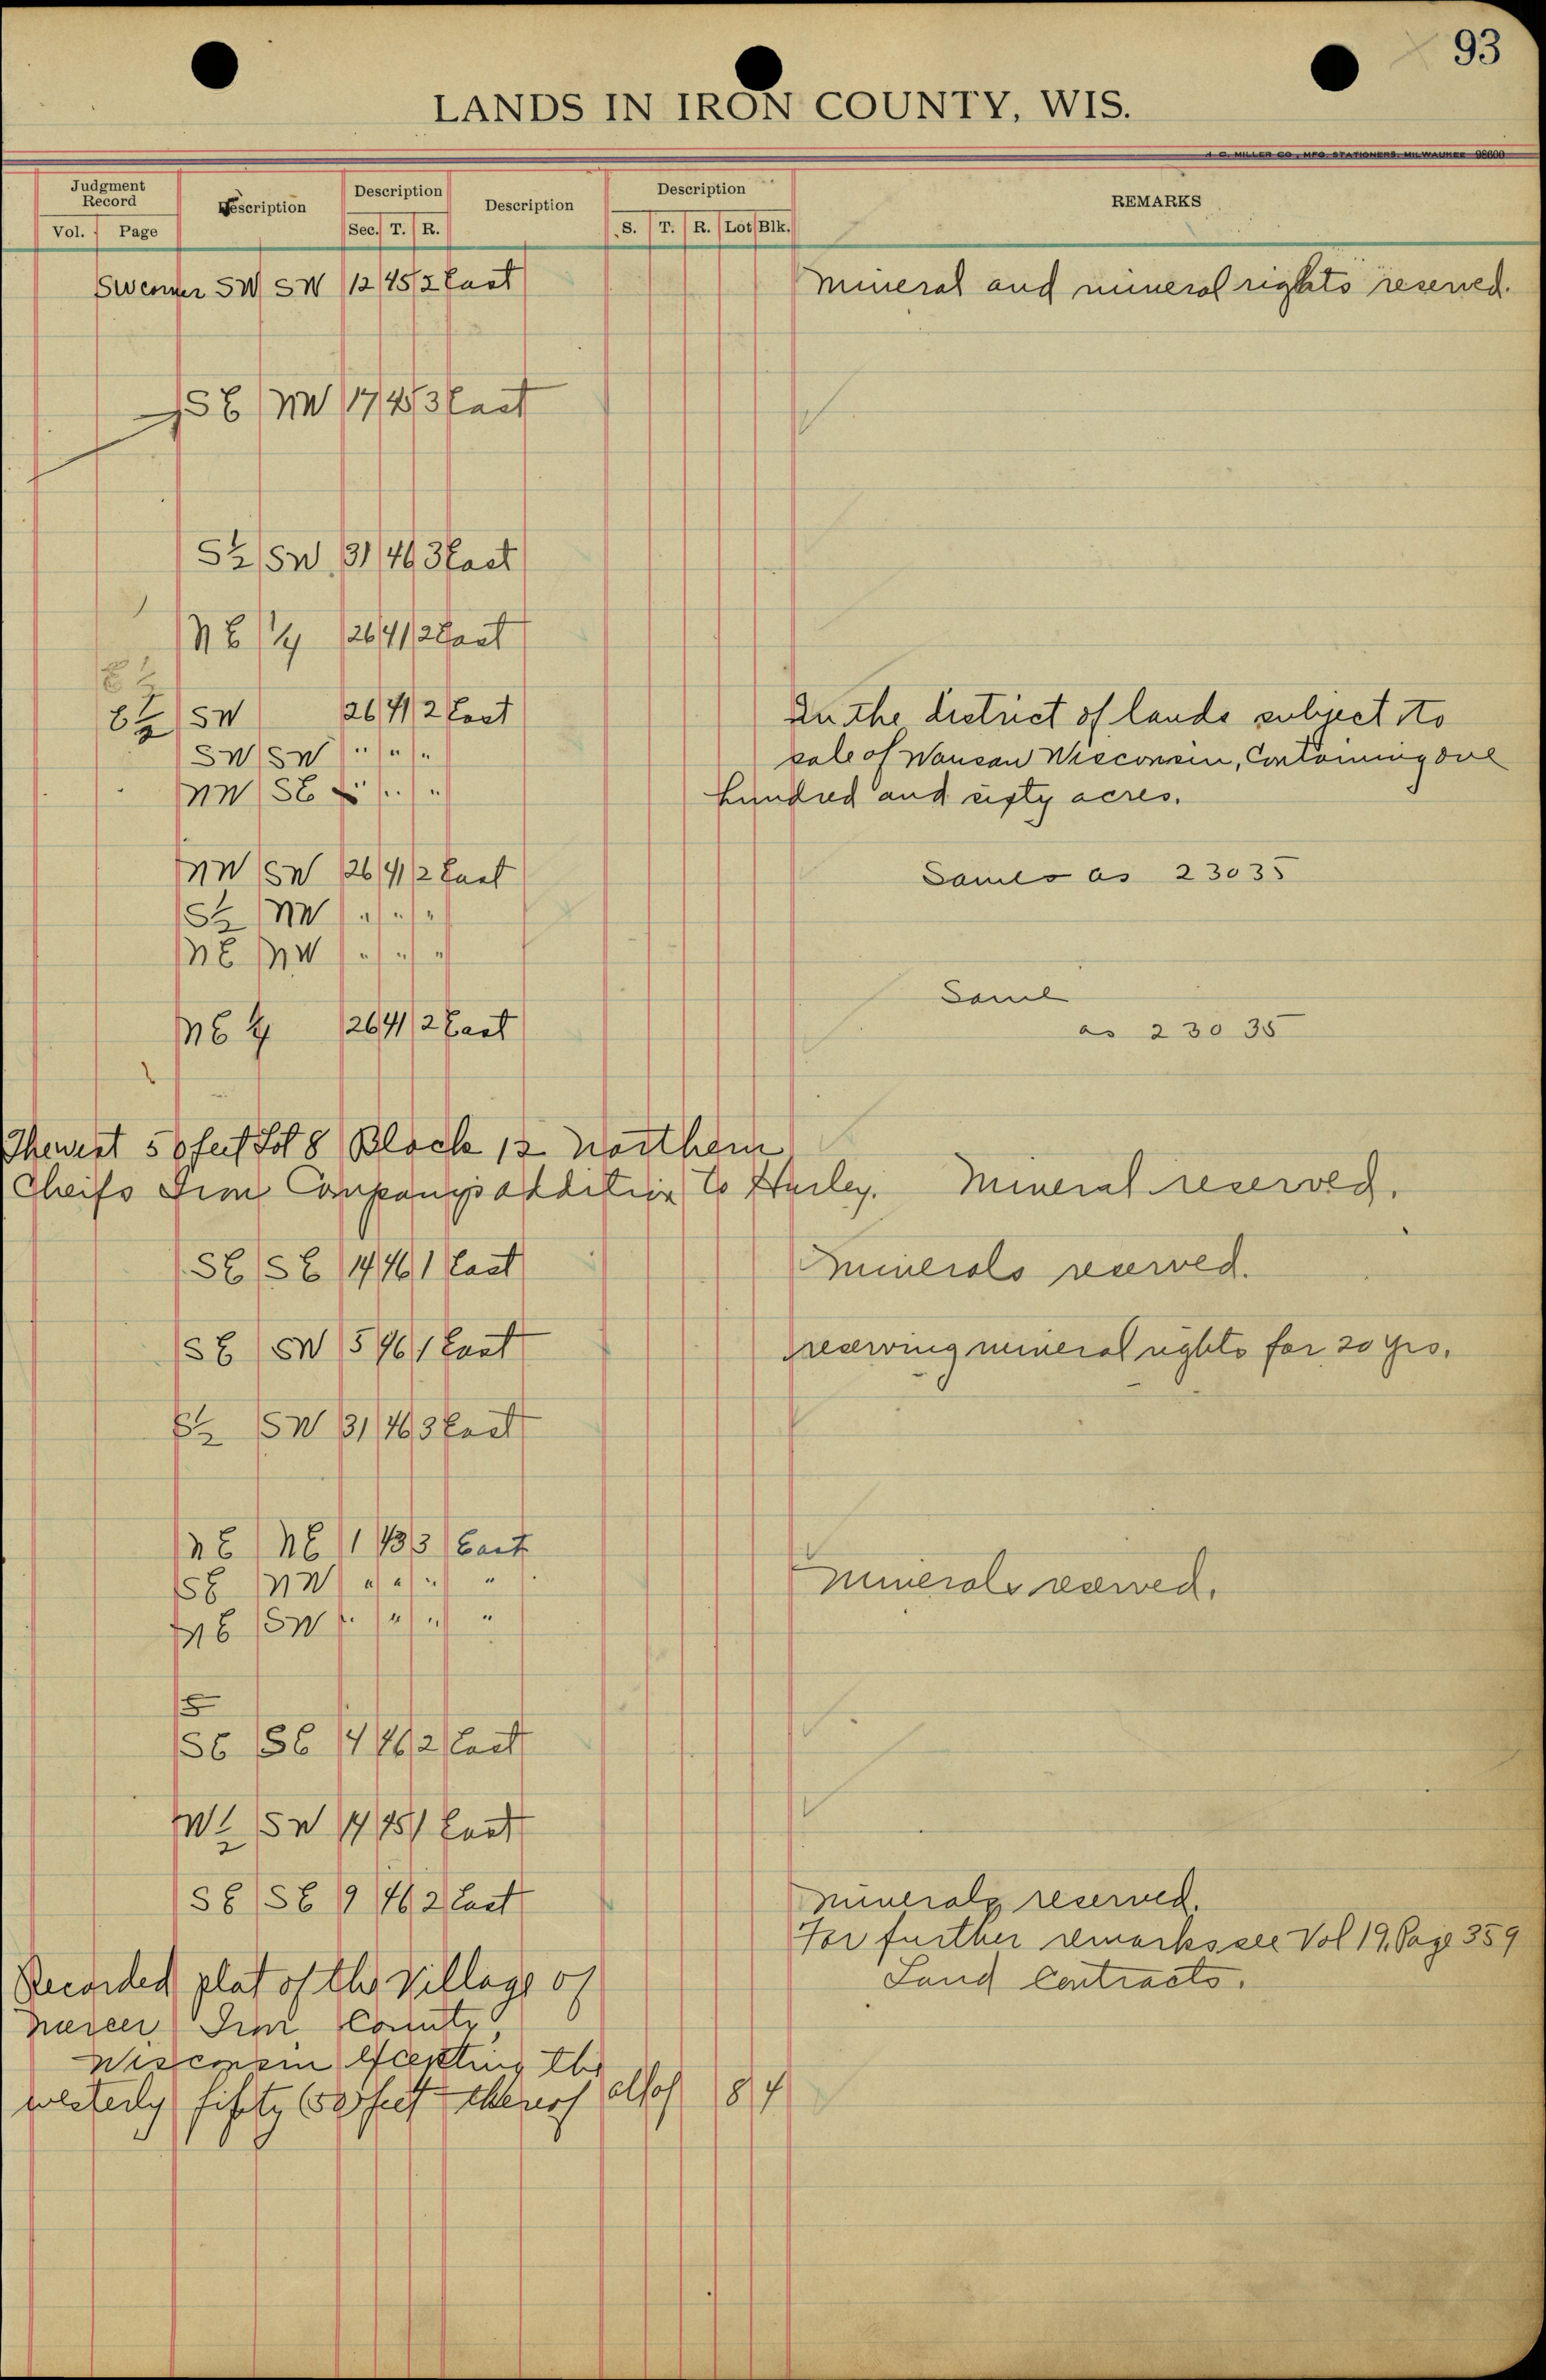 93
LANDS IN IRON COUNTY, WIS.
H. C. MILLER CO., MFG. STATIONERS, MILWAUKEE 98600
Judgment Record Description Description Description Description REMARKS
Vol. Page Sec. T. R. S. T. R. Lot Blk.
SW corner SW SW 12 45 2 East Mineral and mineral rights reserved.
SE NW 17 45 3 East
S½ SW 31 46 3 East
NE ¼ 26 41 2 East
E½
E½ SW 26 41 2 East In the district of lands subject to
SW SW " " " sale of Wausau Wisconsin, Containing one
NW SE " " " hundred and sixty acres.
NW SW 26 41 2 East Same as 23035
S½ NW " " "
NE NW " " "
Same
NE ¼ 26 41 2 East as 23035
The west 50 feet Lot 8 Block 12 Northern
Cheifs Iron Company's addition to Hurley. Mineral reserved.
SE SE 14 46 1 East Minerals reserved.
SE SW 5 46 1 East reserving mineral rights for 20 yrs.
S½ SW 31 46 3 East
NE NE 1 43 3 East
SE NW " " " " Minerals reserved.
NE SW " " " "
SE SE 4 46 2 East
W½ SW 14 45 1 East
SE SE 9 46 2 East Minerals reserved.
For further remarks see Vol 19, Page 359
Recorded plat of the Village of Land Contracts.
Mercer Iron County
Wisconsin Excepting the
westerly fifty (50) feet thereof all of 8 4